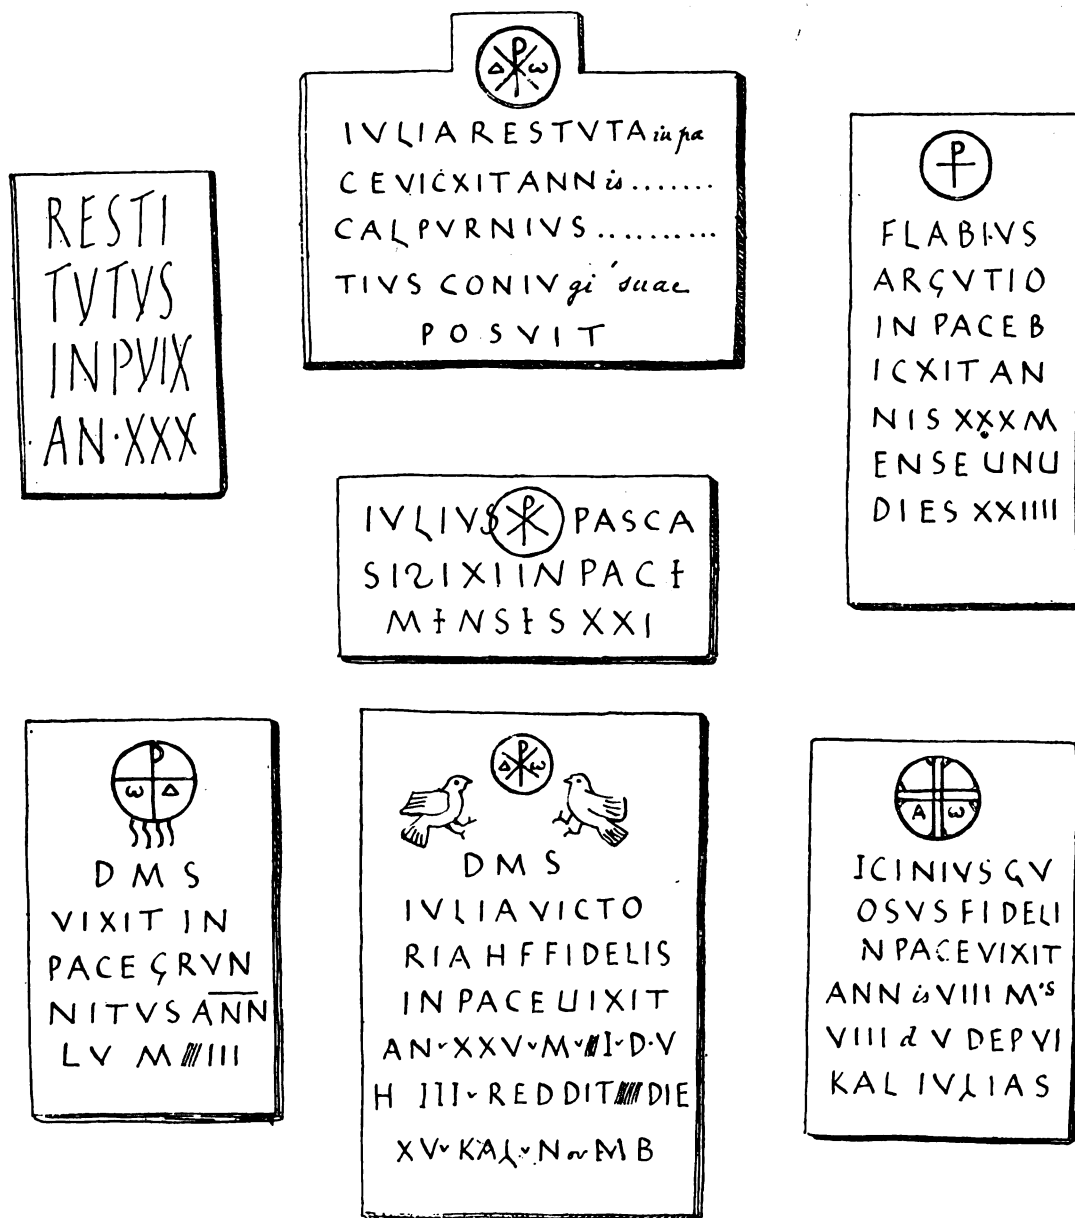 RESTI
TVTVS
INPVIX
AN·XXX
Δ ω
IVLIA RESTVTA in pa
CE VICXIT ANN is.......
CALPVRNIVS..........
TIVS CONIV gi suae
POSVIT
FLABIVS
ARGVTIO
IN PACE B
ICXIT AN
NIS XXX M
ENSE UNU
DIES XXIIII
IVLIVS PASCA
SIS IXI IN PACE
MENSES XXI
ω Δ
D M S
VIXIT IN
PACE GRVN
NITVS ANN
LV M III
Δ ω
D M S
IVLIA VICTO
RIA H F FIDELIS
IN PACE UIXIT
AN XXV M I D·V
H III REDDIT DIE
XV KAL NovMB
A ω
ICINIVS GV
OSVS FIDELI
N PACE VIXIT
ANN is VIII M's
VIII d V DEP VI
KAL IVLIAS